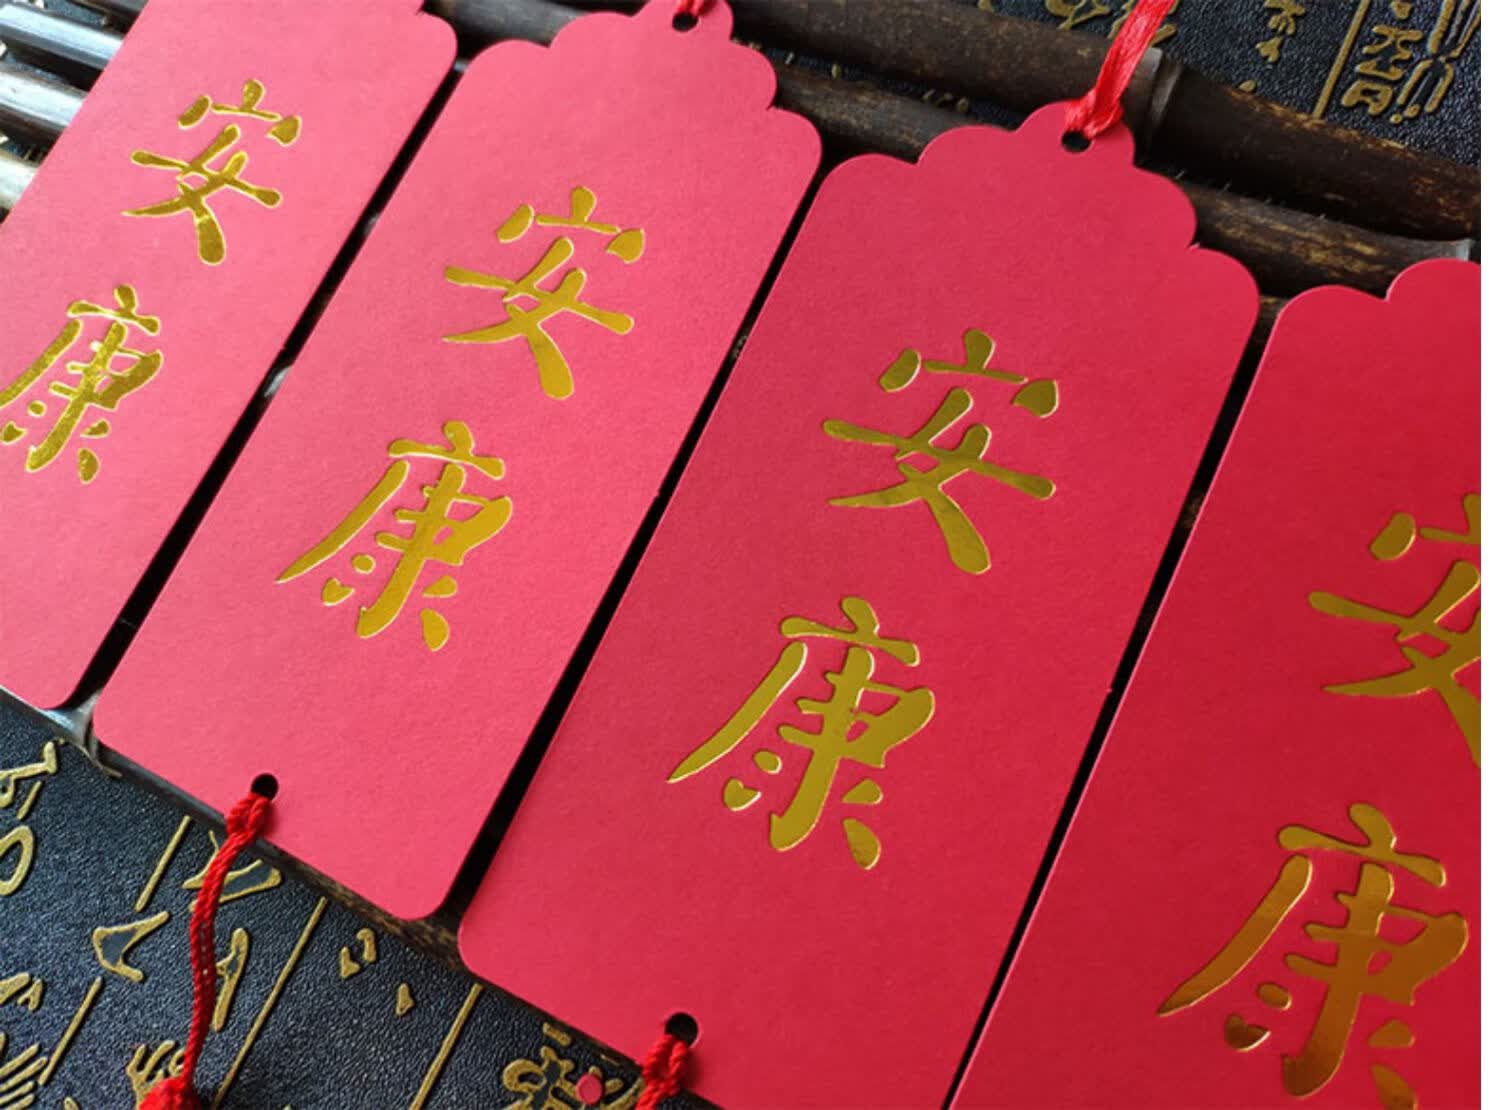 安
康
安
康
安
康
安
康